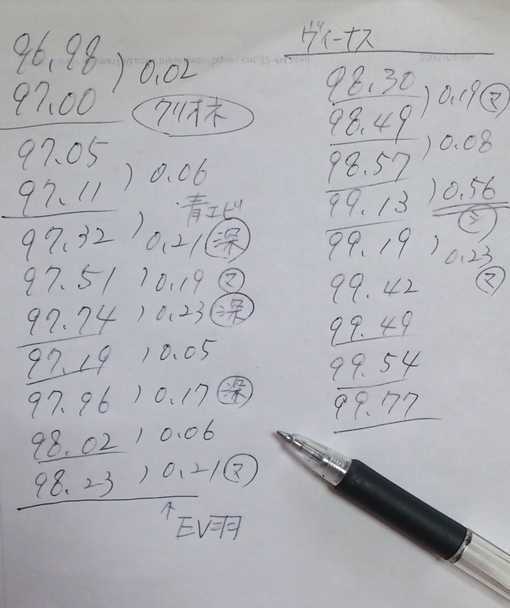 96.98
) 0.02
97.00
クリオネ
97.05
) 0.06
97.11
・青エビ
97.32
) 0.21 深
97.51
) 0.19 マ
97.74
) 0.23 深
97.19
) 0.05
97.96
) 0.17 深
98.02
) 0.06
98.23
) 0.21 マ
↑
EV羽
ヴィーナス
98.30
) 0.19 マ
98.49
) 0.08
98.57
) 0.56
99.13
マ
99.19
) 0.23
マ
99.42
99.49
99.54
99.77